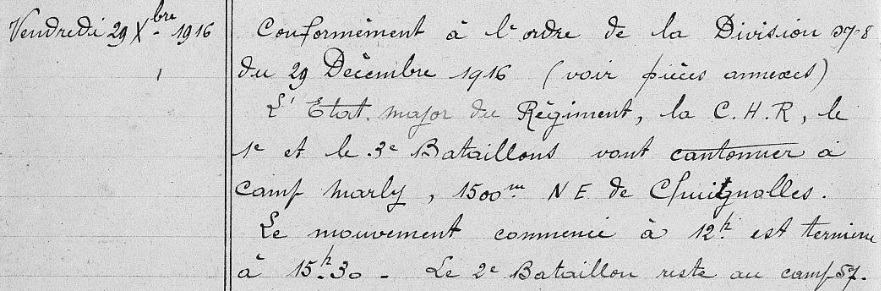 Vendredi 29 Xbre 1916
Conformément à l'ordre de la Division 378
du 29 Décembre 1916 (voir pièces annexes)
L'Etat-major du Régiment, la C.H.R, le
1e et le 3e Bataillons vont cantonner à
Camp Marly, 1500m NE de Chuignolles.
Le mouvement commencé à 12h est terminé
à 15h30 - Le 2e Bataillon reste au camp 57.